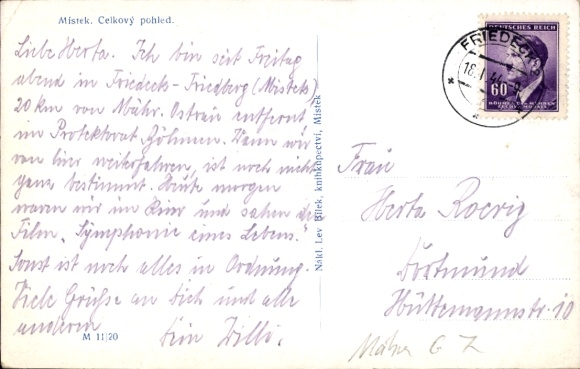 Místek. Celkový pohled.
Liebe Herta. Ich bin seit Freitag
abend in Friedeck-Friedberg (Mistek)
20 km von Mähr. Ostrau entfernt
im Protektorat Böhmen. Wann wir
von hier weiterfahren, ist noch nicht
ganz bestimmt. Heute morgen
waren wir im Kino und sahen den
Film „Symphonie eines Lebens."
Sonst ist noch alles in Ordnung.
Viele Grüße an Dich und alle
anderen
Dein Willi.
M 11|20
Nákl. Lev Bílek, knihkupectví, Místek
FRIEDECK
18. I. 44
DEUTSCHES REICH
60
BÖHMEN UND MÄHREN
Frau
Herta Roerig
Dortmund
Hüttemannstr. 10